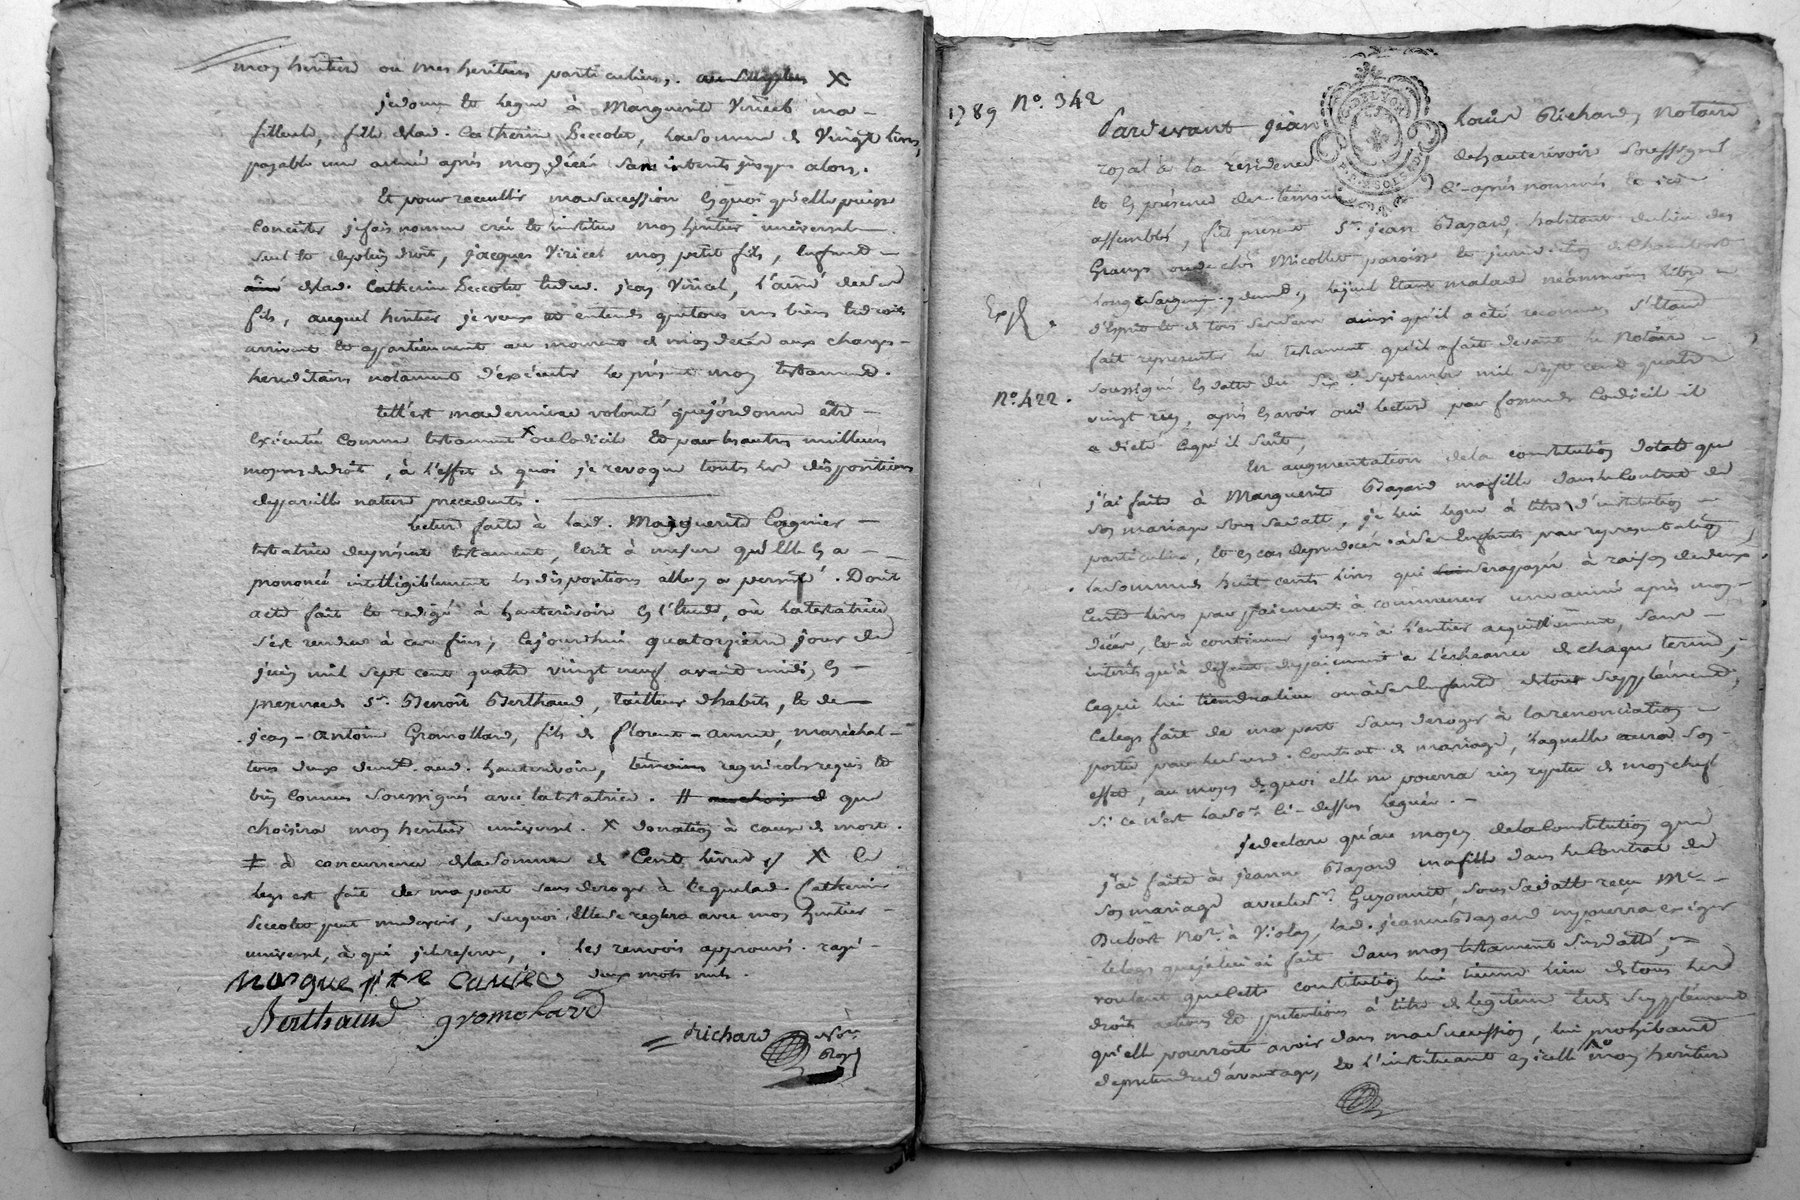 mon heritier ou mes heritiers particuliers. au surplus X
je donne et legue à Marguerite Viricel ma
filleule, fille de lad. Catherine Peccolet, la somme de Vingt livres,
payable une année après mon décès sans interets jusques alors.
Et pour recueillir ma succession en quoi qu'elle puisse
consister je fais nomme crée et institue mon heritier universel
seul et de plein droit, jacques Viricel mon petit fils, enfant
ainé de lad. Catherine Peccolet et dud. jean Viricel, l'ainé de ses
fils, auquel heritier je veux et entends que tous mes biens et droits
arrivent et appartiennent au moment de mon decès aux charges
hereditaires notament d'exécuter le présent mon testament.
tell'est ma derniere volonté que j'ordonne etre
exécutée comme testament X ou codicil et par les autres meilleurs
moyens de droit, à l'effet de quoi je revoque toutes les dispositions
de pareille nature precedentes.
Lecture faite à lad. Marguerite
testatrice du présent testament, écrit à mesure qu'elle en a
prononcé intelligiblement les dispositions elle y a persisté. Dont
acte fait et redigé à hauterivoire en l'étude, où la testatrice
s'est rendue à ces fins, cejourdhui quatorzieme jour de
juin mil sept cent quatre vingt neuf avant midi, en
presence de Sr. Benoit Berthaud, tailleur d'habits, et de
jean-Antoine Gromollard, fils de florent-annet, maréchal
tous deux demt. aud. hauterivoire, témoins regnicoles requis et
bien connus soussignés avec la testatrice. # au choix de que
choisira mon heritier universel. X donation à cause de mort.
‡ à concurrence de la somme de Cent livres X Ce
legs est fait de ma part sans deroger à ce que lad. Catherine
Peccolet peut me devoir, surquoi elle se reglera avec mon heritier
universel, à qui je le reserve. Les renvois approuvés. rayé
deux mots nuls.
Berthaud gromolard
Richard Nore.
Royal
1789 No. 342
Pardevant jean Louis Richard, Notaire
royal à la résidence de hauterivoire soussigné
et en présence des temoins ci-après nommés, et ici
assemblés, fut présent Sr. jean Bazard, habitant du lieu des
Granges paroisse et jurisdiction de Chambost
Longessaigne, y demt., lequel étant malade néammoins libre
d'esprit et de tous ses sens ainsi qu'il a été reconnu, s'étant
Exp.
fait representer le testament qu'il a fait devant le Notaire
No. 422.
soussigné en datte du six Septembre mil sept cent quatre
vingt six, après en avoir oui lecture par forme de Codicil il
a dicté ce qu'il suit,
En augmentation de la constitution dotale que
j'ai faite à Marguerite Bazard ma fille dans le Contrat de
son mariage sous sa datte, je lui legue à titre d'institution
particuliere, et en cas de predecès à ses enfants par representation
la somme de huit cents livres qui lui sera payée à raison de deux
cents livres par paiement à commencer une année après mon
décès, et à continuer jusques à l'entier acquittement, sans
intérêts qu'à defaut de paiement à l'écheance de chaque terme,
ce qui lui tiendra lieu ou à ses enfants de tout supplément,
Ce legs fait de ma part sans deroger à la renonciation
portée par led. Contrat de mariage, laquelle aura son
effet, au moyen de quoi elle ne pourra rien repeter de mon chef
si ce n'est la sore. ci-dessus leguée.
je declare qu'au moyen de la Constitution que
j'ai faite à jeanne Bazard ma fille dans le Contrat de
son mariage avec le Sr. Guyonnet, sous sa datte reçu Me.
Dubost Nore. à Violay, lad. jeanne Bazard ne pourra exiger
le legs que je lui ai fait dans mon testament susdatté,
voulant que cette constitution lui tienne lieu de tous les
droits actions et pretentions à titre de legitime et de supplément
qu'elle pourroit avoir dans ma succession, lui prohibant
de pretendre d'avantage, et l'instituant en icelle mon heritiere